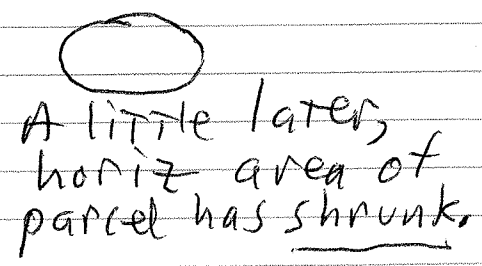 A little later,
horiz area of
parcel has shrunk.